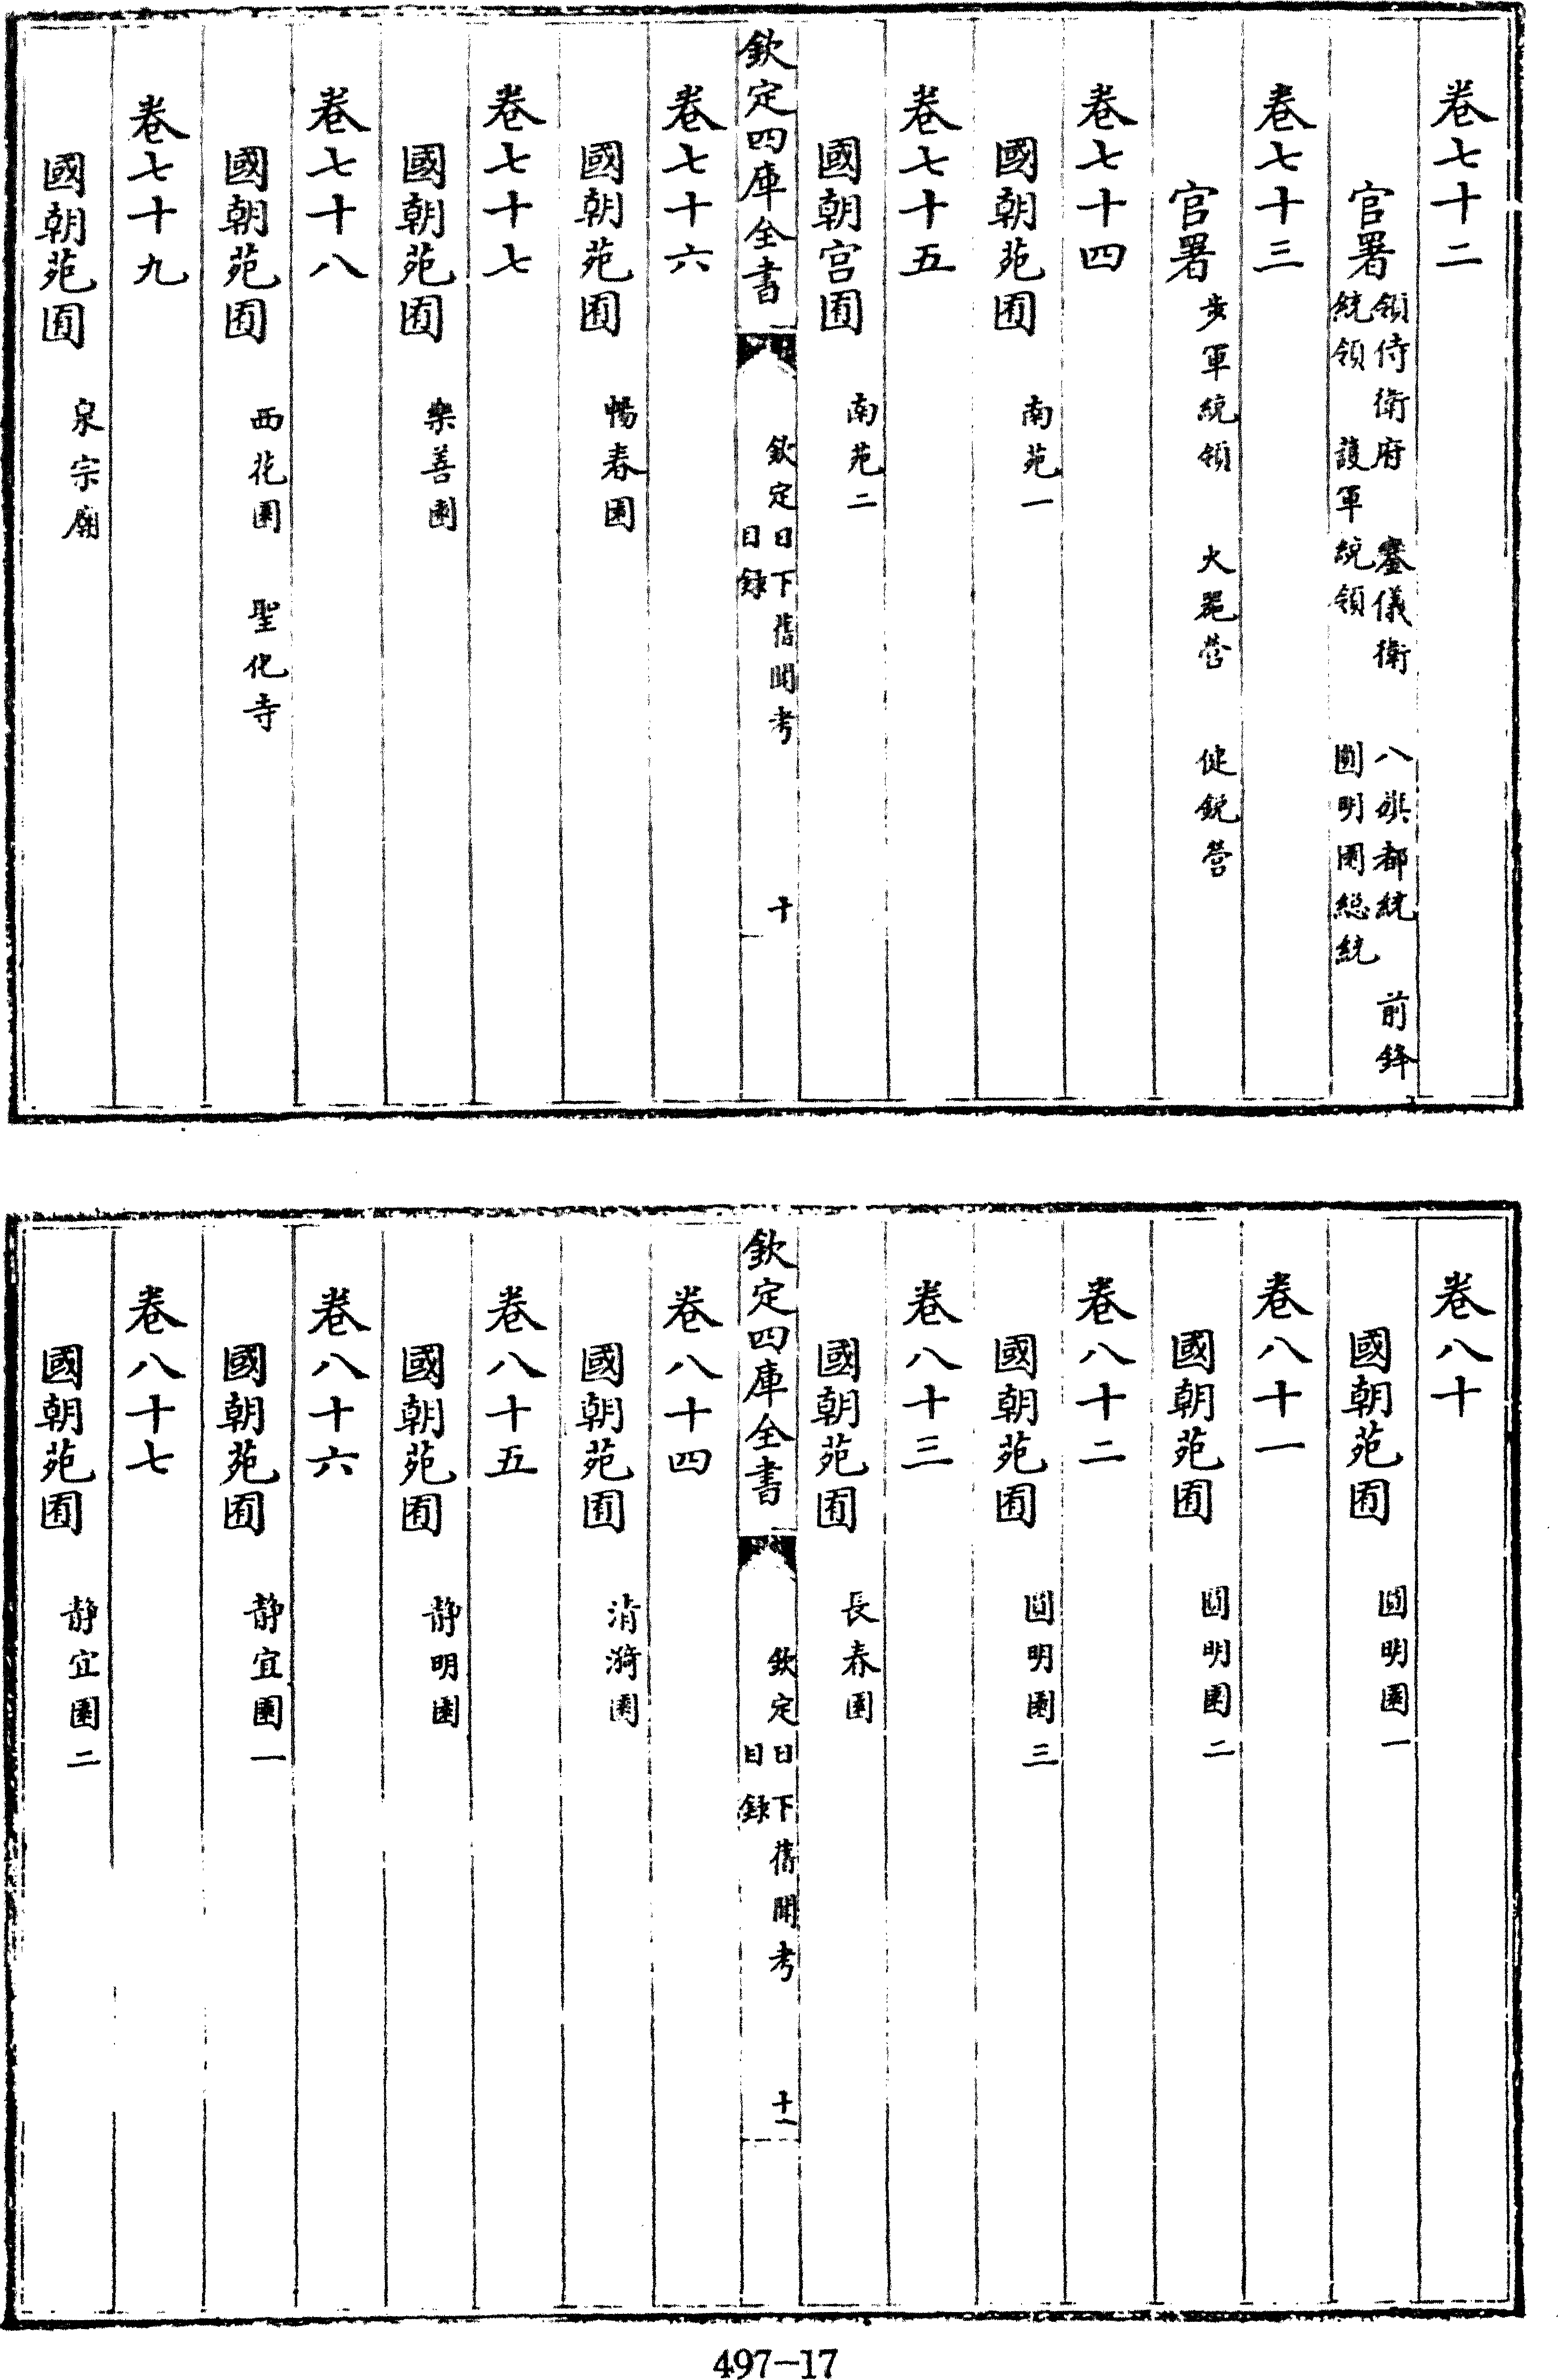 卷七十二
官署 領侍衛府 鑾儀衛 八旗都統 前鋒
統領 護軍統領 圓明園總統
卷七十三
官署 步軍統領 火器營 健銳營
卷七十四
國朝苑囿 南苑一
卷七十五
國朝宫囿 南苑二
欽定四庫全書 欽定日下舊聞考 目錄 十
卷七十六
國朝苑囿 暢春園
卷七十七
國朝苑囿 樂善園
卷七十八
國朝苑囿 西花園 聖化寺
卷七十九
國朝苑囿 泉宗廟
卷八十
國朝苑囿 圓明園一
卷八十一
國朝苑囿 圓明園二
卷八十二
國朝苑囿 圓明園三
卷八十三
國朝苑囿 長春園
欽定四庫全書 欽定日下舊聞考 目錄 十一
卷八十四
國朝苑囿 清漪園
卷八十五
國朝苑囿 靜明園
卷八十六
國朝苑囿 靜宜園一
卷八十七
國朝苑囿 靜宜園二
497-17